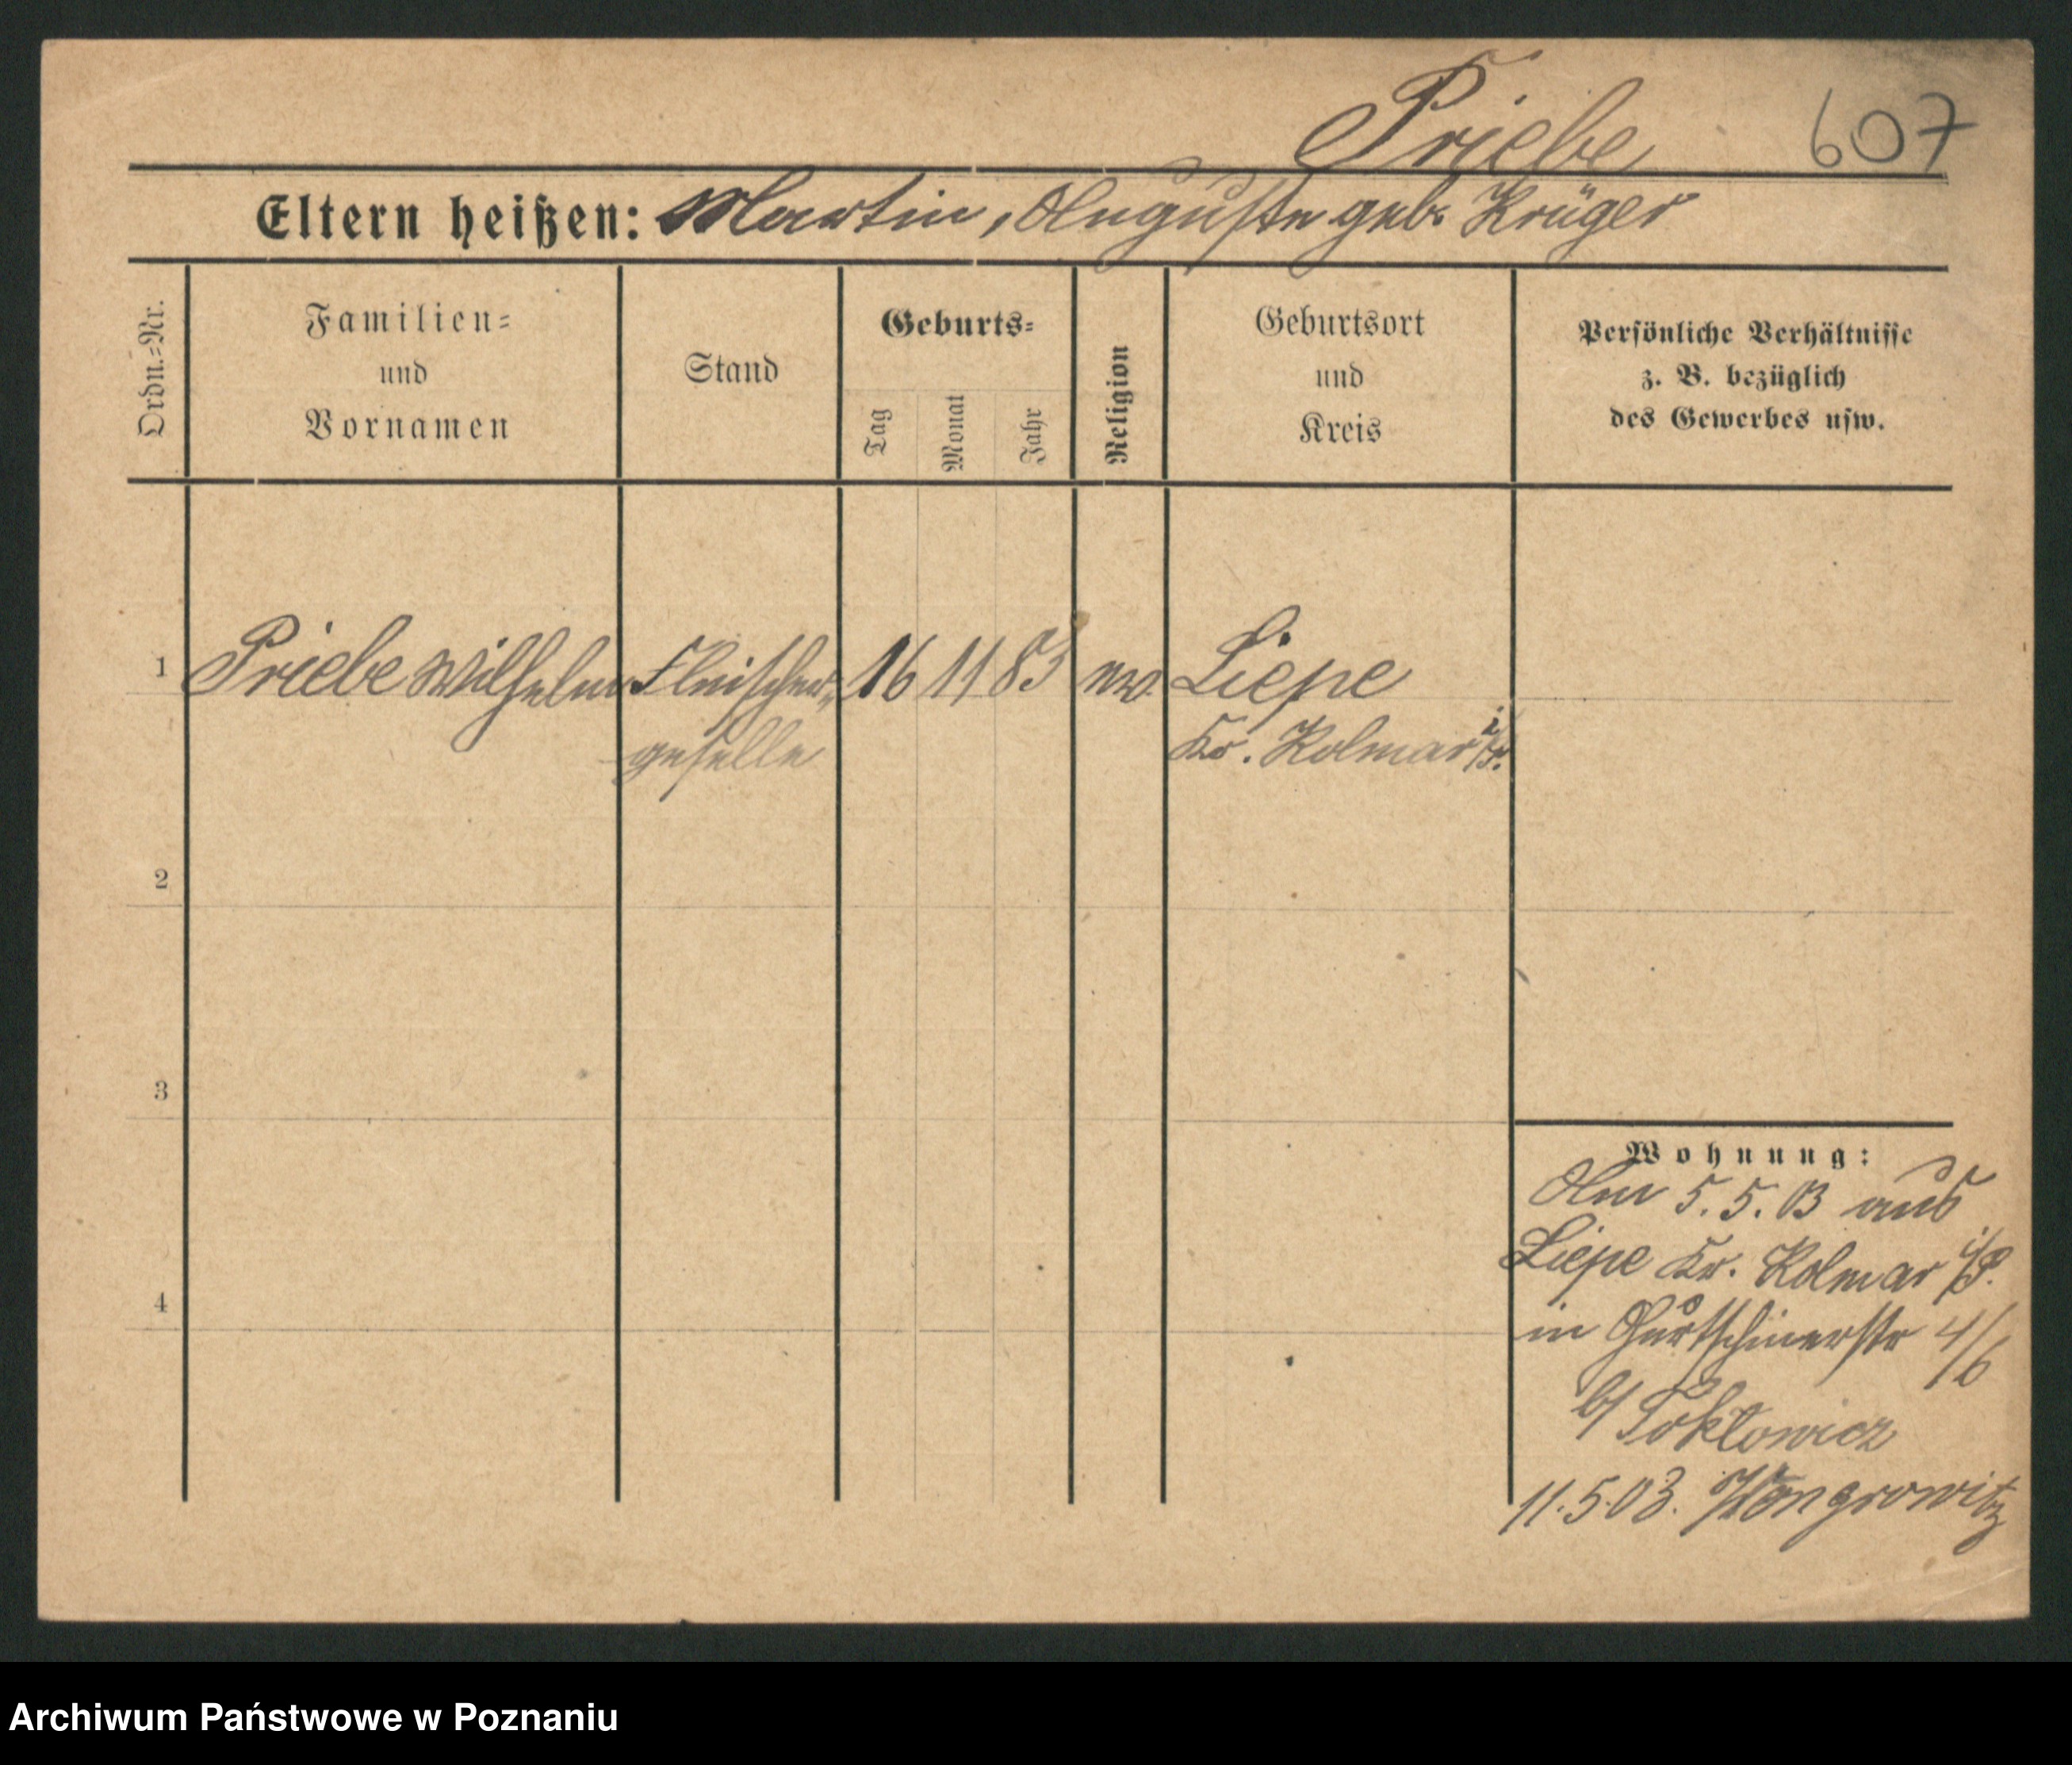 Priebe 607
Eltern heißen: Martin, Auguste geb. Krüger
Ordn.=Nr.
Familien=
und
Vornamen
Stand
Geburts=
Tag
Monat
Jahr
Religion
Geburtsort
und
Kreis
Persönliche Verhältnisse
z. B. bezüglich
des Gewerbes usw.
1 Priebe Wilhelm Fleischer= 16 11 83 ev. Liepe
geselle Kr. Kolmar i/P.
2
3
4
Wohnung:
Am 5.5.03 aus
Liepe Kr. Kolmar i/P.
in Gurtschinerstr 4/6
b/
11.5.03. Wongrowitz
Archiwum Państwowe w Poznaniu